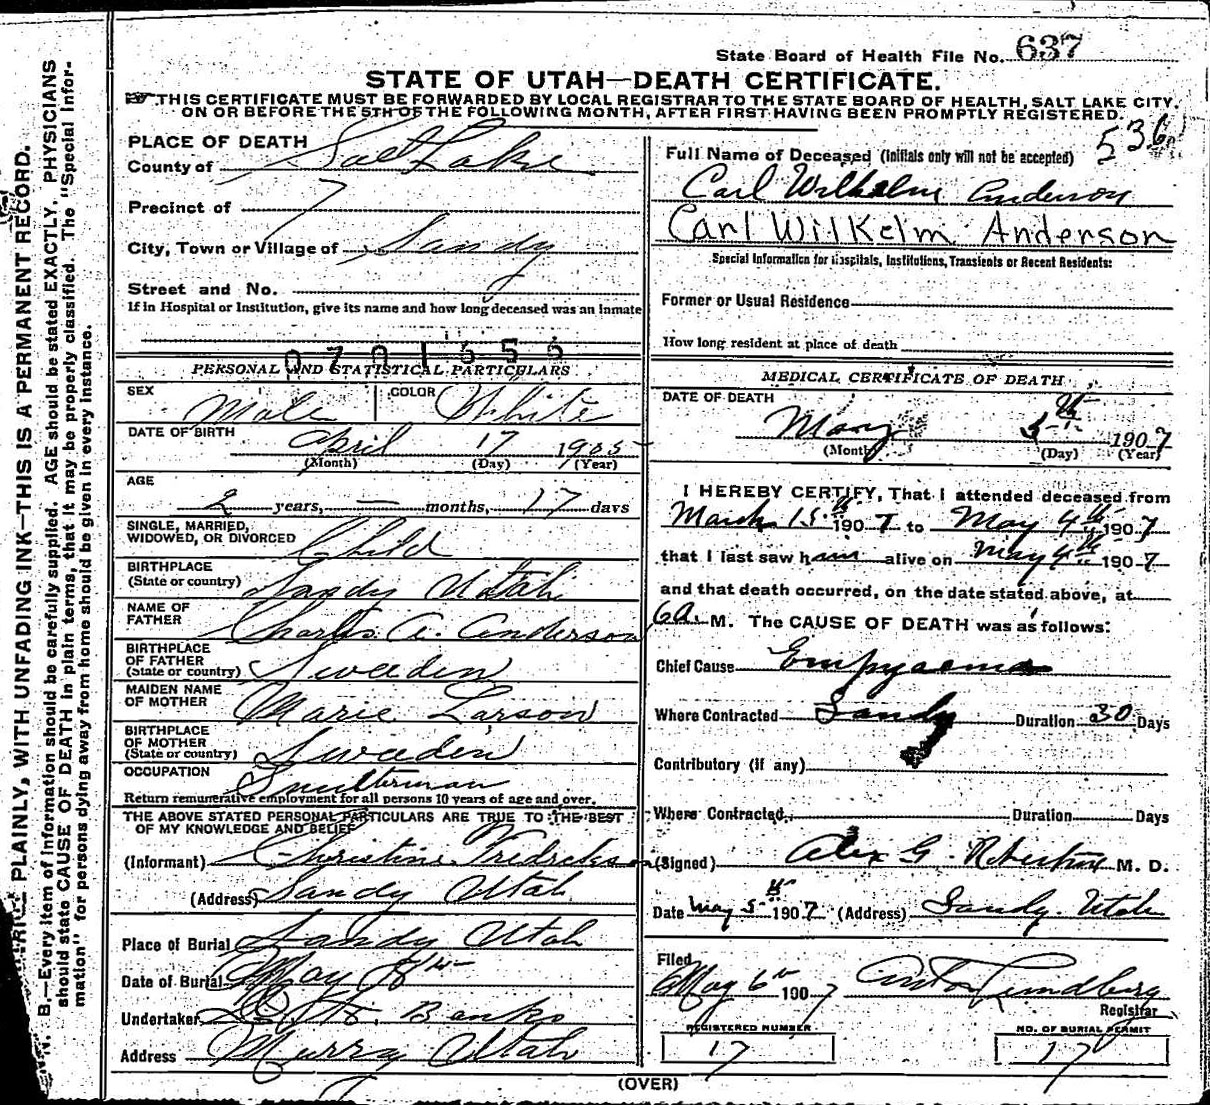 State Board of Health File No. 637
STATE OF UTAH—DEATH CERTIFICATE.
THIS CERTIFICATE MUST BE FORWARDED BY LOCAL REGISTRAR TO THE STATE BOARD OF HEALTH, SALT LAKE CITY,
ON OR BEFORE THE 5TH OF THE FOLLOWING MONTH, AFTER FIRST HAVING BEEN PROMPTLY REGISTERED.
PLAINLY, WITH UNFADING INK—THIS IS A PERMANENT RECORD.
N. B.—Every item of information should be carefully supplied. AGE should be stated EXACTLY. PHYSICIANS
should state CAUSE OF DEATH in plain terms, that it may be properly classified. The "Special Infor-
mation" for persons dying away from home should be given in every instance.
PLACE OF DEATH
County of Salt Lake
Precinct of 7
City, Town or Village of Sandy
Street and No.
If in Hospital or Institution, give its name and how long deceased was an inmate
0701656
PERSONAL AND STATISTICAL PARTICULARS
SEX Male COLOR White
DATE OF BIRTH April 17 1905
(Month) (Day) (Year)
AGE
2 years, — months, 17 days
SINGLE, MARRIED,
WIDOWED, OR DIVORCED Child
BIRTHPLACE
(State or country) Sandy Utah
NAME OF
FATHER Charles A. Anderson
BIRTHPLACE
OF FATHER
(State or country) Sweden
MAIDEN NAME
OF MOTHER Marie Larson
BIRTHPLACE
OF MOTHER
(State or country) Sweden
OCCUPATION Smelterman
Return remunerative employment for all persons 10 years of age and over.
THE ABOVE STATED PERSONAL PARTICULARS ARE TRUE TO THE BEST
OF MY KNOWLEDGE AND BELIEF
(Informant) Christine Fredrickson
(Address) Sandy Utah
Place of Burial Sandy Utah
Date of Burial May
Undertaker Banks
Address Murray Utah
536
Full Name of Deceased (Initials only will not be accepted)
Carl Wilhelm Anderson
Carl Wilkelm Anderson
Special Information for Hospitals, Institutions, Transients or Recent Residents:
Former or Usual Residence
How long resident at place of death
MEDICAL CERTIFICATE OF DEATH
DATE OF DEATH
May 5th 1907
(Month) (Day) (Year)
I HEREBY CERTIFY, That I attended deceased from
March 15th 1907 to May 4th 1907
that I last saw him alive on May 4th 1907
and that death occurred, on the date stated above, at
6 A. M. The CAUSE OF DEATH was as follows:
Chief Cause Empyaema
Where Contracted Sandy Duration 30 Days
Contributory (if any)
Where Contracted Duration Days
(Signed) Alex G. Robertson M. D.
Date May 5th 1907 (Address) Sandy Utah
Filed
May 6th 1907 Anton Lundberg
Registrar
REGISTERED NUMBER NO. OF BURIAL PERMIT
17 17
(OVER)